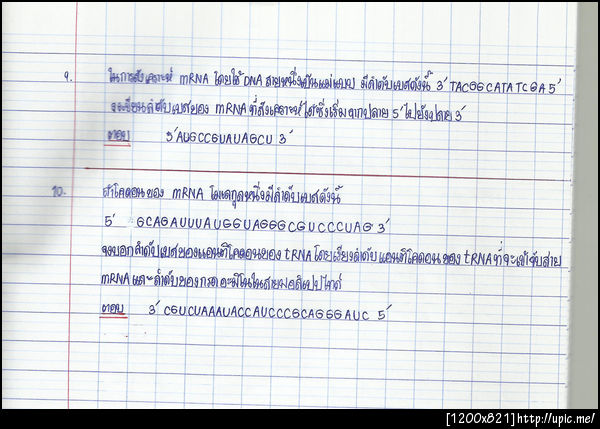 9. ในการสังเคราะห์ mRNA โดยใช้ DNA สายหนึ่งเป็นแม่แบบ มีลำดับเบสดังนี้ 3' TACGGCATATCGA 5'
จงเขียนลำดับเบสของ mRNA ที่สังเคราะห์ได้ซึ่งเริ่มจากปลาย 5' ไปยังปลาย 3'
ตอบ 5' AUGCCGUAUAGCU 3'
10. ถ้าโคดอนของ mRNA โมเลกุลหนึ่งมีลำดับเบสดังนี้
5' GCAGAUUUAUGGUAGGGCGUCCCUAG 3'
จงบอกลำดับเบสของแอนติโคดอนของ tRNA โดยเรียงลำดับแอนติโคดอนของ tRNA ที่จะเข้าจับสาย
mRNA และลำดับของกรดอะมิโนในสายพอลิเปปไทด์
ตอบ 3' CGUCUAAAUACCAUCCCGCAGGGAUC 5'
[1200x821]http://upic.me/